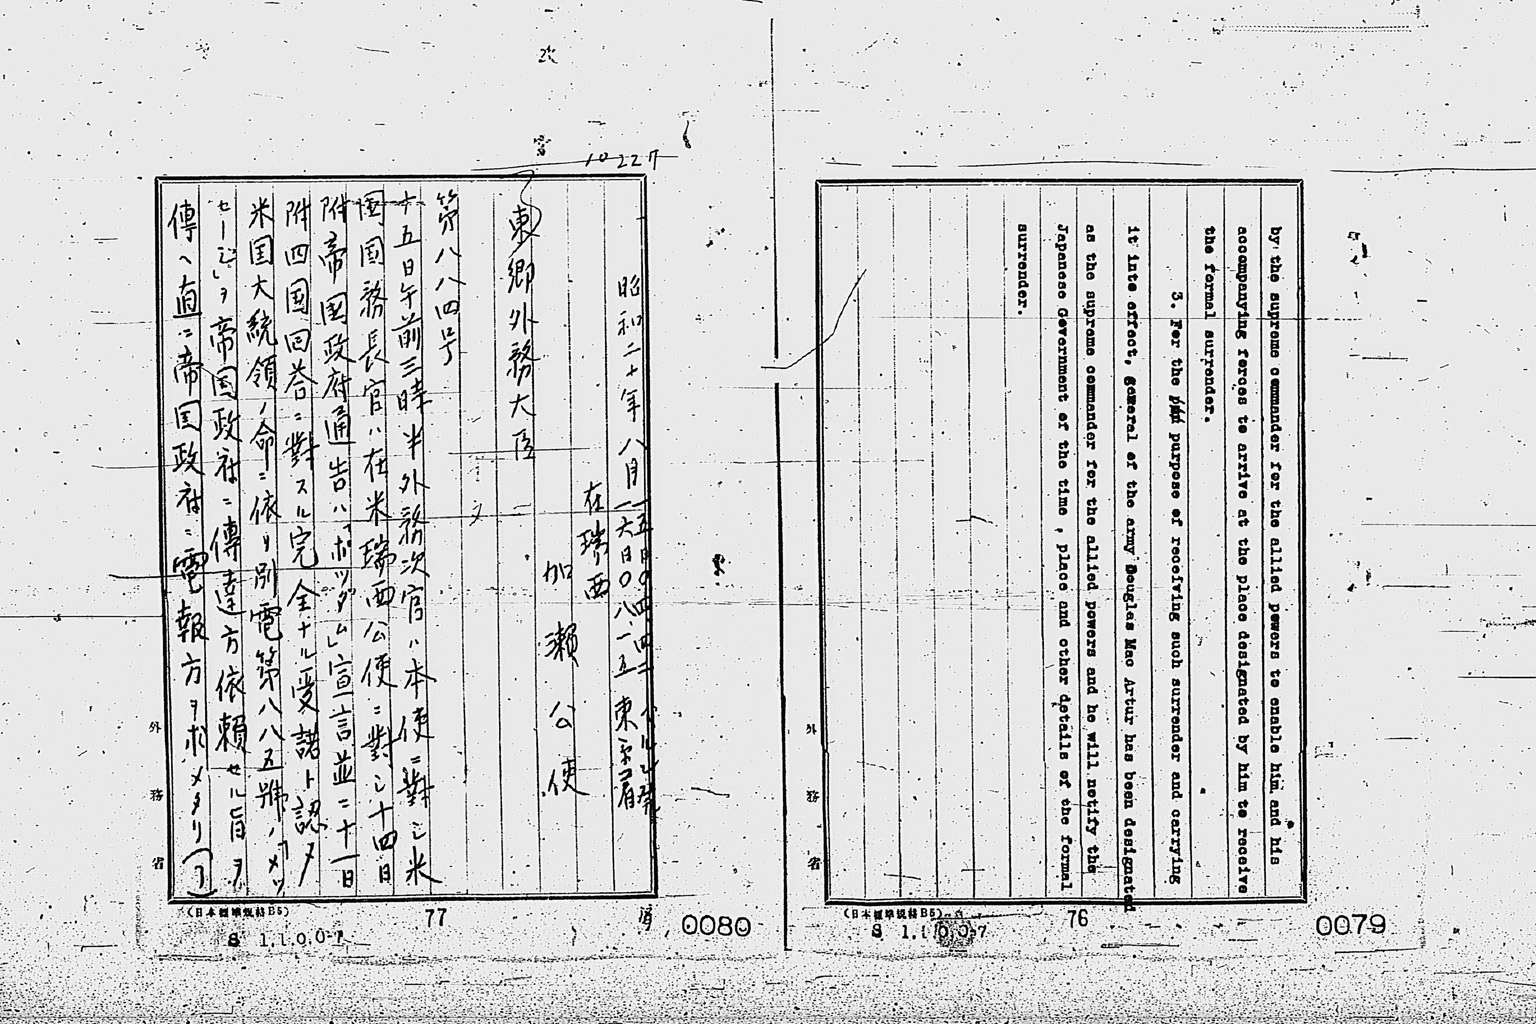 by the supreme commander for the allied powers to enable him and his
accompanying forces to arrive at the place designated by him to receive
the formal surrender.
3. For the purpose of receiving such surrender and carrying
it into effect, general of the army Douglas Mac Artur has been designated
as the supreme commander for the allied powers and he will notify the
Japanese Government of the time , place and other details of the formal
surrender.
外務省
(日本標準規格B5)
76
S 1.1.0.0-7
0079
10227
昭和二十年八月一五日〇四、四二 ベルン発
一六日〇八、一五 東京着
在瑞西
加瀬公使
東郷外務大臣
第八八四号
十五日午前三時半外務次官ハ本使ニ對シ米
国国務長官ハ在米瑞西公使ニ對シ十四日
附帝國政府通告ハ「ポツダム」宣言並ニ十一日
附四国回答ニ對スル完全ナル受諾ト認メ
米国大統領ノ命ニ依リ別電第八八五號ノ「メツ
セージ」ヲ帝国政府ニ傳達方依頼セル旨ヲ
傳ヘ直ニ帝国政府ニ電報方ヲ求メタリ(了)
外務省
(日本標準規格B5)
77
S 1.1.0.0-7
0080